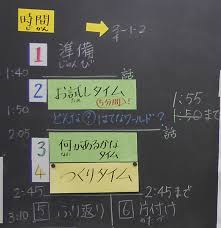 時間
じかん
2-1-2
1 準備
じゅんび
1:40 話
2 お試しタイム
(5分間)
1:55
1:50 どんな?はてなワールド? 1:50まで
2:05 話
3 何があるかな
タイム
4 つくりタイム
2:45 2:45まで
3:10 5 ふり返り 6 片付け
かたづ